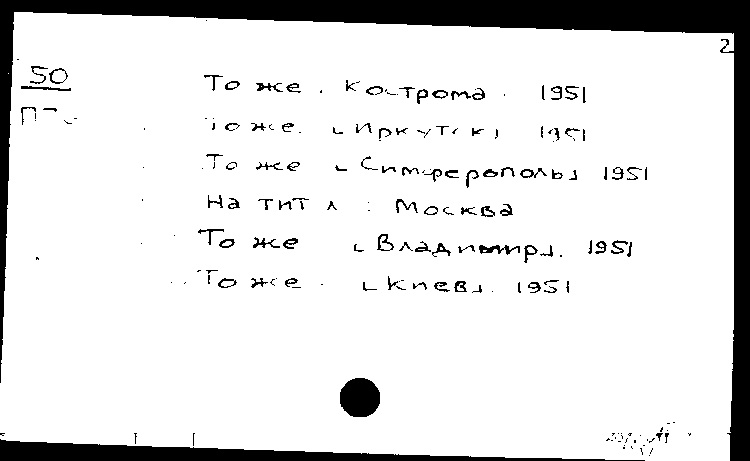 2
50
То же. Кострома. 1951
То же. [Иркутск] 1951
То же [Симферополь] 1951
На тит л : Москва
То же [Владимир]. 1951
То же. [Киев]. 1951